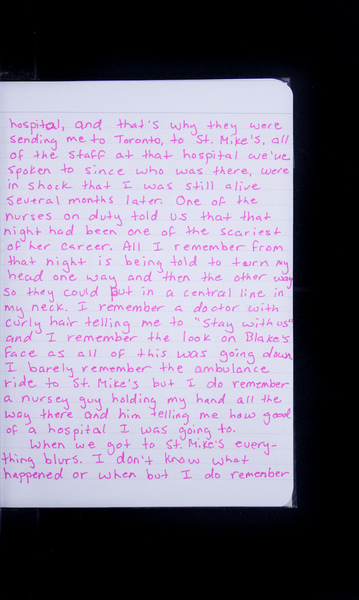 hospital, and that's why they were
sending me to Toronto, to St. Mike's, all
of the staff at that hospital we've
spoken to since who was there, were
in shock that I was still alive
several months later. One of the
nurses on duty told us that that
night had been one of the scariest
of her career. All I remember from
that night is being told to turn my
head one way and then the other way
so they could put in a central line in
my neck. I remember a doctor with
curly hair telling me to "Stay with us"
and I remember the look on Blake's
face as all of this was going down.
I barely remember the ambulance
ride to St. Mike's but I do remember
a nursey guy holding my hand all the
way there and him telling me how good
of a hospital I was going to.
When we got to St. Mike's every-
thing blurs. I don't know what
happened or when but I do remember